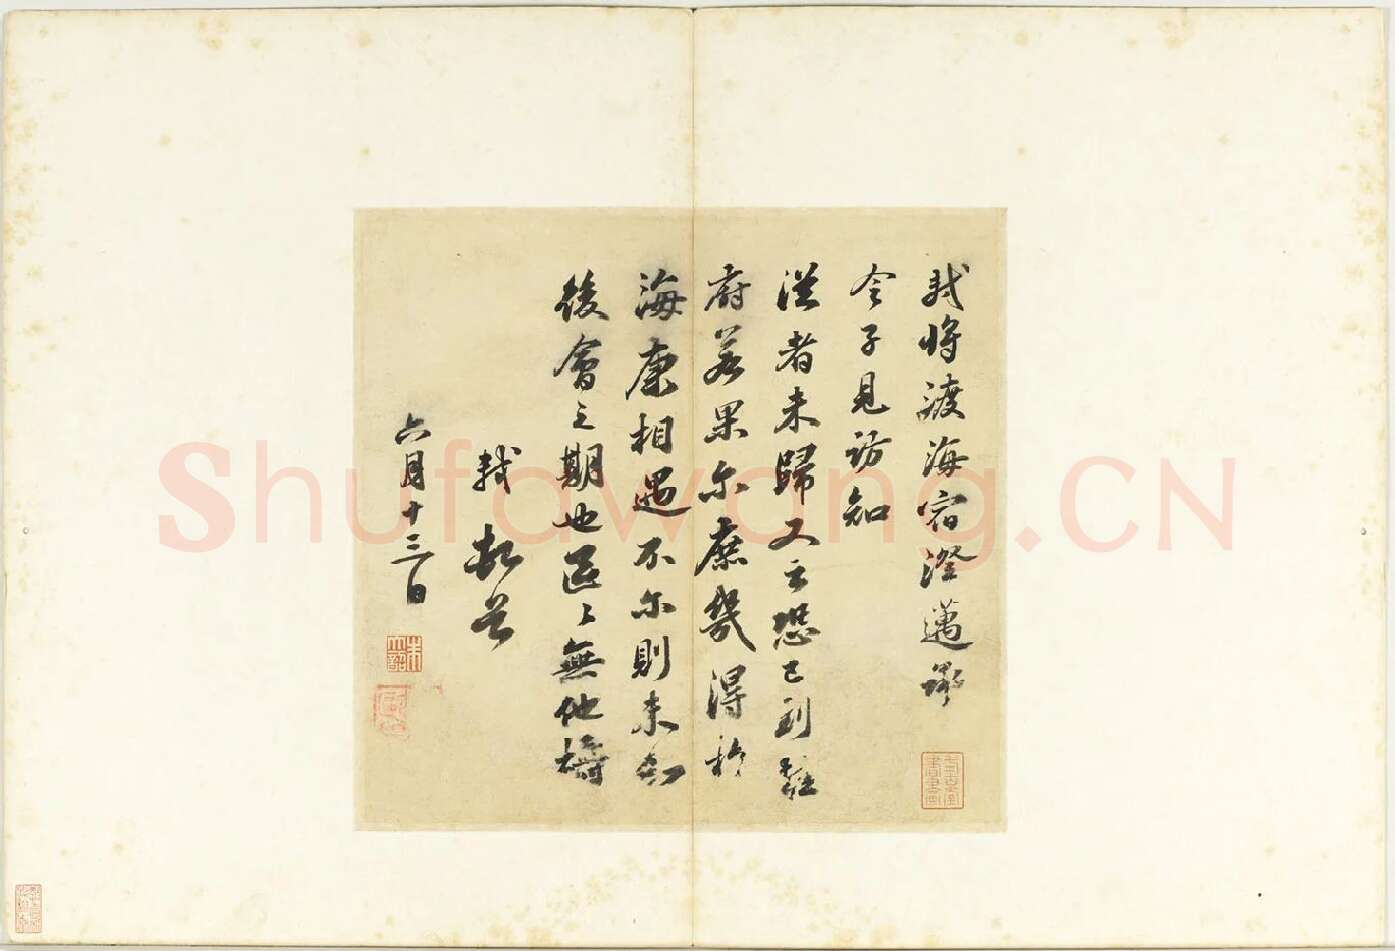 軾將渡海宿澄邁承
令子見訪知
從者未歸又云恐已到桂
府若果爾庶幾得於
海康相遇不爾則未知
後會之期也區區無他禱
軾頓首
六月十三日
Shufawang.CN